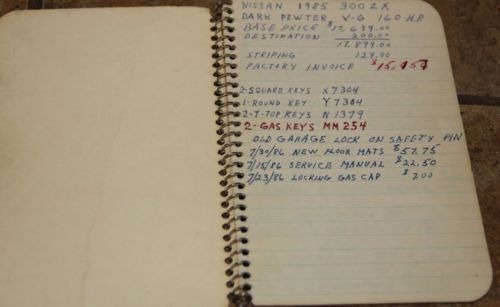 NISSAN 1985 300ZX
DARK PEWTER, V-6 160 H.P.
BASE PRICE $17,699.00
DESTINATION 200.00
17,899.00
STRIPING 129.00
FACTORY INVOICE
2-SQUARE KEYS X7304
1-ROUND KEY Y7304
2-T-TOP KEYS N1379
2- GAS KEYS MM254
OLD GARAGE LOCK ON SAFETY PIN
7/30/86 NEW FLOOR MATS $57.75
7/15/86 SERVICE MANUAL $22.50
7/23/86 LOCKING GAS CAP